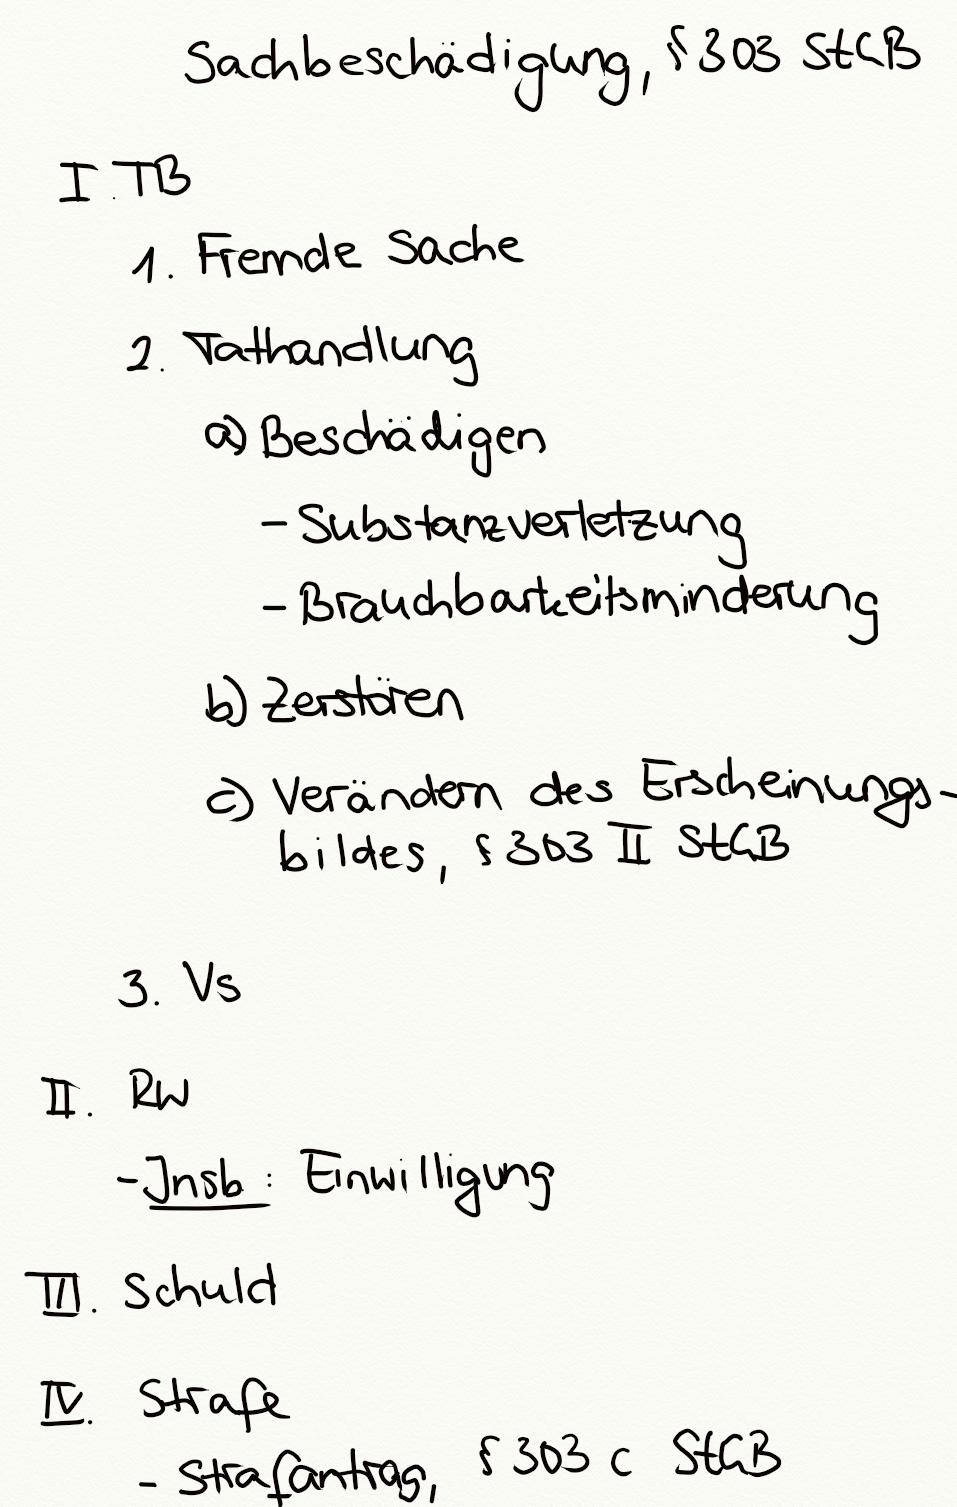 Sachbeschädigung, § 303 StGB
I. TB
1. Fremde Sache
2. Tathandlung
a) Beschädigen
- Substanzverletzung
- Brauchbarkeitsminderung
b) Zerstören
c) Verändern des Erscheinungs-
bildes, § 303 II StGB
3. Vs
II. RW
- Insb: Einwilligung
III. Schuld
IV. Strafe
- Strafantrag, § 303 c StGB